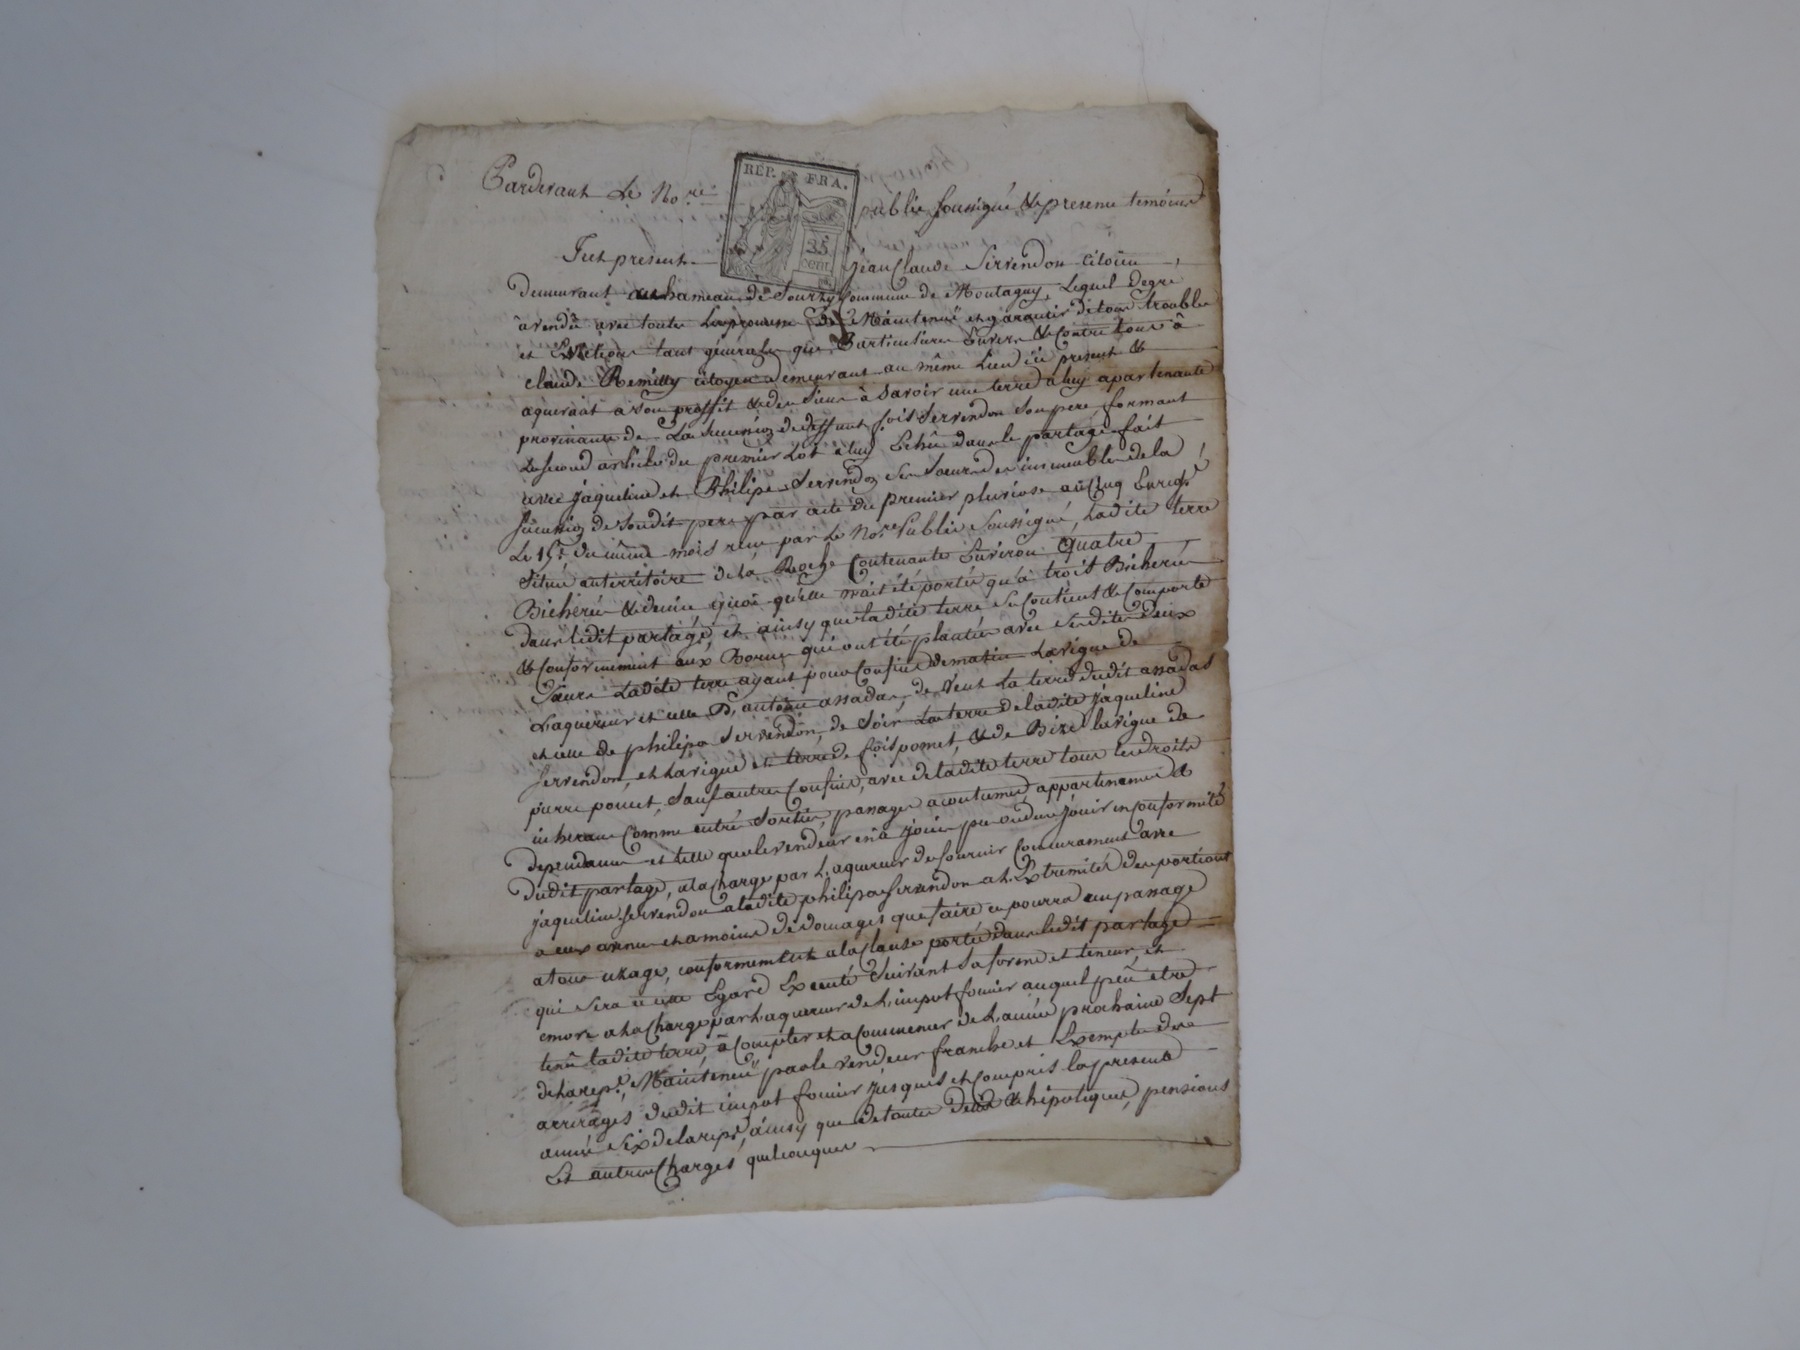 Pardevant Le No.re public soussigné & en presence temoins
REP. FRA.
25
cent.
Fut present Jean Claude Servendon citoien
demeurant au hameau de Sourzy Commune de Montagny, Lequel degré
à vendû avec toutte Les promesse de Maintenuë et garantir de tous troubles
et Evictions tant generales que Particulieres Envers & contre tous â
claude Remilly citoyen demeurant au même Lieu ici present &
aquerant a son proffit & des siens à savoir une terre à luy apartenante
provenante de La succession de deffunt fois Servendon son pere formant
Le second article du premier Lot à luy Echû dans le partage fait
avec jaqueline et Philipe Servendon ses soeurs des immeubles de la
succession de soudit pere par acte du premier pluviose an Cinq Enregé
Le 15e du même mois reçu par Le No.re Public Soussigné, Ladite terre
située au territoire de la Roche Contenante Environ quatre
Bicherées & demie quoi quelle n'ait été portée qu'à trois Bicherées
dans ledit partage, et ainsy que ladite terre se Contient & Comporte
& Conformement aux Bornes qui ont été plantées avec sesdites deux
Sœurs Ladite terre ayant pour Confins de matin La vigne de
L'aquereur et celle D'antoine assada, de vent La terre dudit assada
et celle de philipe Servendon, de Soir La terre de ladite jaqueline
Servendon, et La vigne et terre de fois ponet, & de Bize la vigne de
pierre ponet, Sauf autres Confins, avec de ladite terre tous les droits
inherans Comme entrée Sorties, passages acoutumés, appartenances &
dependances et telle que le vendeur en à joui pu ou du jouir en conformité
dudit partage, a la charge par L'aquereur de fournir Concurament avec
jaqueline Servendon a ladite philipe Servendon a L'Extremité des portions
a eux avenus et a moins de domages que faire ce pourra un passage
a tous usage, conformement a la Clause portée dans ledit partage
qui sera a cette Egard Executé Suivant Sa forme et teneur, et
encore a la Charge par L'aquereur de L'impot foncier auquel peû etre
tenû ladite terre, à Compter et a Commencer de L'année prochaine Sept
de la rep.e, Maintenuë par le vendeur franche et Exempte des
arrerages dudit impot foncier jusques et Compris la presente
année six de la rep.e, ainsy que de toutes dettes & hipoteques, pensions
Et autres Charges quelconques